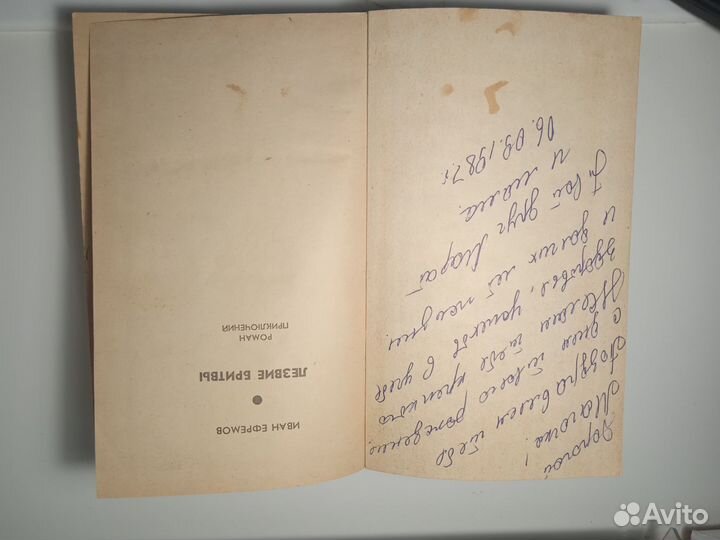 ИВАН ЕФРЕМОВ
ЛЕЗВИЕ БРИТВЫ
РОМАН
ПРИКЛЮЧЕНИЙ
Дорогой
Поздравляем тебя
с днем твоего рождения.
Желаем тебе крепкого
здоровья, успехов в учебе
и долгих лет жизни.
Твой друг Марат
и мама.
06.09.1987г.
Avito